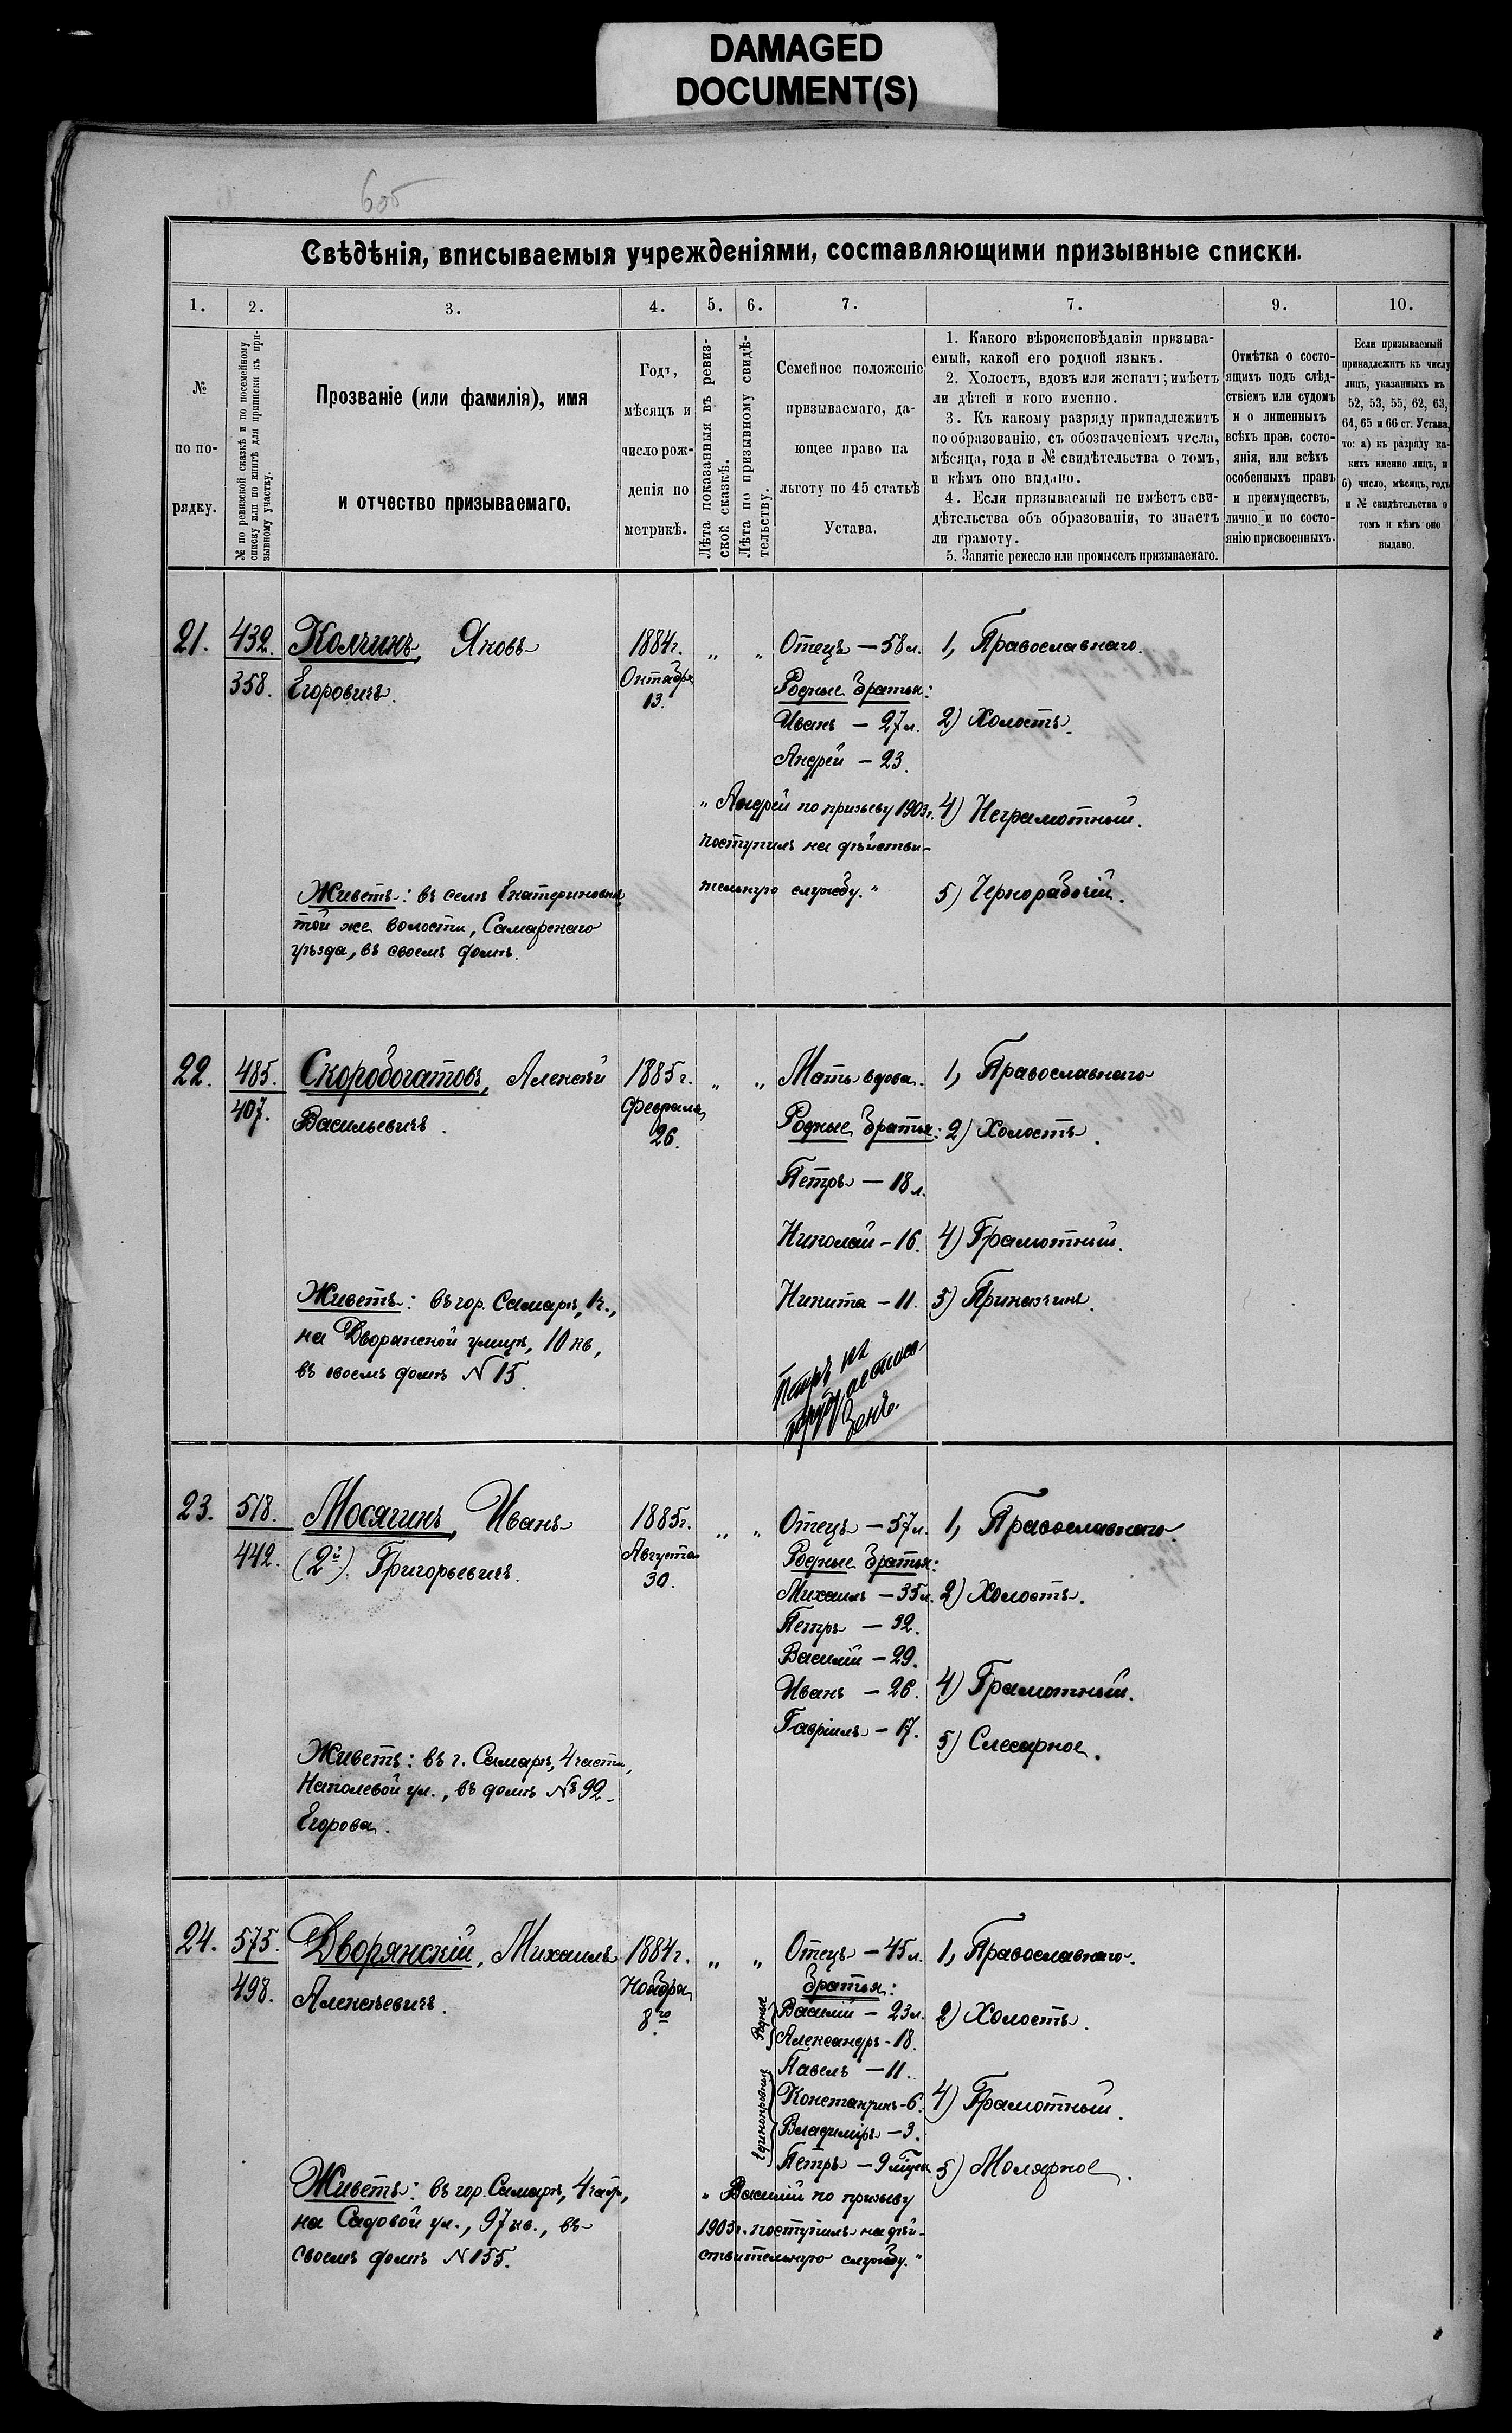 DAMAGED
DOCUMENT(S)
Свѣдѣнія, вписываемыя учрежденіями, составляющими призывные списки.
1. 2. 3. 4. 5. 6. 7. 7. 9. 10.
№
по по-
рядку.
№ по ревизской сказкѣ и по посемейному
списку или по книгѣ для приписки къ при-
зывному участку.
Прозваніе (или фамилія), имя
и отчество призываемаго.
Годъ,
мѣсяцъ и
число рож-
денія по
метрикѣ.
Лѣта показанныя въ ревиз-
ской сказкѣ.
Лѣта по призывному свидѣ-
тельству.
Семейное положеніе
призываемаго, да-
ющее право на
льготу по 45 статьѣ
Устава.
1. Какого вѣроисповѣданія призыва-
емый, какой его родной языкъ.
2. Холостъ, вдовъ или женатъ; имѣетъ
ли дѣтей и кого именно.
3. Къ какому разряду принадлежитъ
по образованію, съ обозначеніемъ числа,
мѣсяца, года и № свидѣтельства о томъ,
и кѣмъ оно выдано.
4. Если призываемый не имѣетъ сви-
дѣтельства объ образованіи, то знаетъ
ли грамоту.
5. Занятіе ремесло или промыселъ призываемаго.
Отмѣтка о состо-
ящихъ подъ слѣд-
ствіемъ или судомъ
и о лишенныхъ
всѣхъ прав. состо-
янія, или всѣхъ
особенныхъ правъ
и преимуществъ,
лично и по состо-
янію присвоенныхъ.
Если призываемый
принадлежитъ къ числу
лицъ, указанныхъ въ
52, 53, 55, 62, 63,
64, 65 и 66 ст. Устава,
то: а) къ разряду ка-
кихъ именно лицъ, и
б) число, мѣсяцъ, годъ
и № свидѣтельства о
томъ и кѣмъ оно
выдано.
21. 432. Колчинъ, Яковъ 1884г. „ „ Отецъ — 58 л. 1, Православнаго.
358. Егоровичъ. Октября Родные братья:
13. Иванъ — 27 л. 2) Холостъ.
Андрей — 23.
„Андрей по призыву 1903г. 4) Неграмотный.
поступилъ на дѣйстви-
Живетъ: въ селѣ Екатериновкѣ, тельную службу." 5) Чернорабочій.
той же волости, Самарскаго
уѣзда, въ своемъ домѣ.
22. 485. Скоробогатовъ, Алексѣй 1885г. „ „ Мать вдова. 1, Православнаго
407. Васильевичъ. Февраля Родные братья: 2) Холостъ.
26.
Петръ — 18 л.
Николай — 16. 4) Грамотный.
Живетъ: въ гор. Самарѣ, 1ч., Никита — 11. 5) Приказчикъ.
на Дворянской улицѣ, 10 кв,
въ своемъ домѣ N 15.
Петръ
23. 518. Мосягинъ, Иванъ 1885г. „ „ Отецъ — 57 л. 1, Православнаго.
442. (2й) Григорьевичъ. Августа Родные братья:
30. Михаилъ — 35 л. 2) Холостъ.
Петръ — 32.
Василій — 29.
Иванъ — 26. 4) Грамотный.
Гавріилъ — 17. 5) Слесарное.
Живетъ: въ г. Самарѣ, 4 части,
Наполевой ул., въ домѣ № 92
Егорова.
24. 575. Дворянскій, Михаилъ 1884г. „ „ Отецъ — 45 л. 1, Православнаго.
498. Алексѣевичъ. Ноября братья:
8го Родные Василій — 23 л. 2) Холостъ.
Александръ - 18.
Единокровные Павелъ — 11.
Константинъ - 6. 4) Грамотный.
Владиміръ — 3.
Петръ — 9 мѣсяц 5) Малярное.
Живетъ: въ гор. Самарѣ, 4 час., „Василій по призыву
на Садовой ул., 97 кв., въ 1903г. поступилъ на дѣй-
своемъ домѣ N 155. ствительную службу."